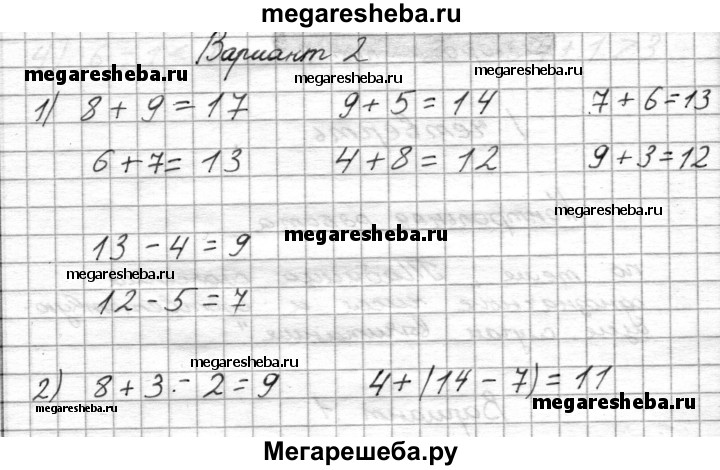 megaresheba.ru
Вариант 2
megaresheba.ru megaresheba.ru megaresheba.ru
1) 8 + 9 = 17 9 + 5 = 14 7 + 6 = 13
6 + 7 = 13 4 + 8 = 12 9 + 3 = 12
megaresheba.ru
13 - 4 = 9 megaresheba.ru
megaresheba.ru
12 - 5 = 7
megaresheba.ru
2) 8 + 3 - 2 = 9 4 + (14 - 7) = 11
megaresheba.ru megaresheba.ru
Мегарешеба.ру